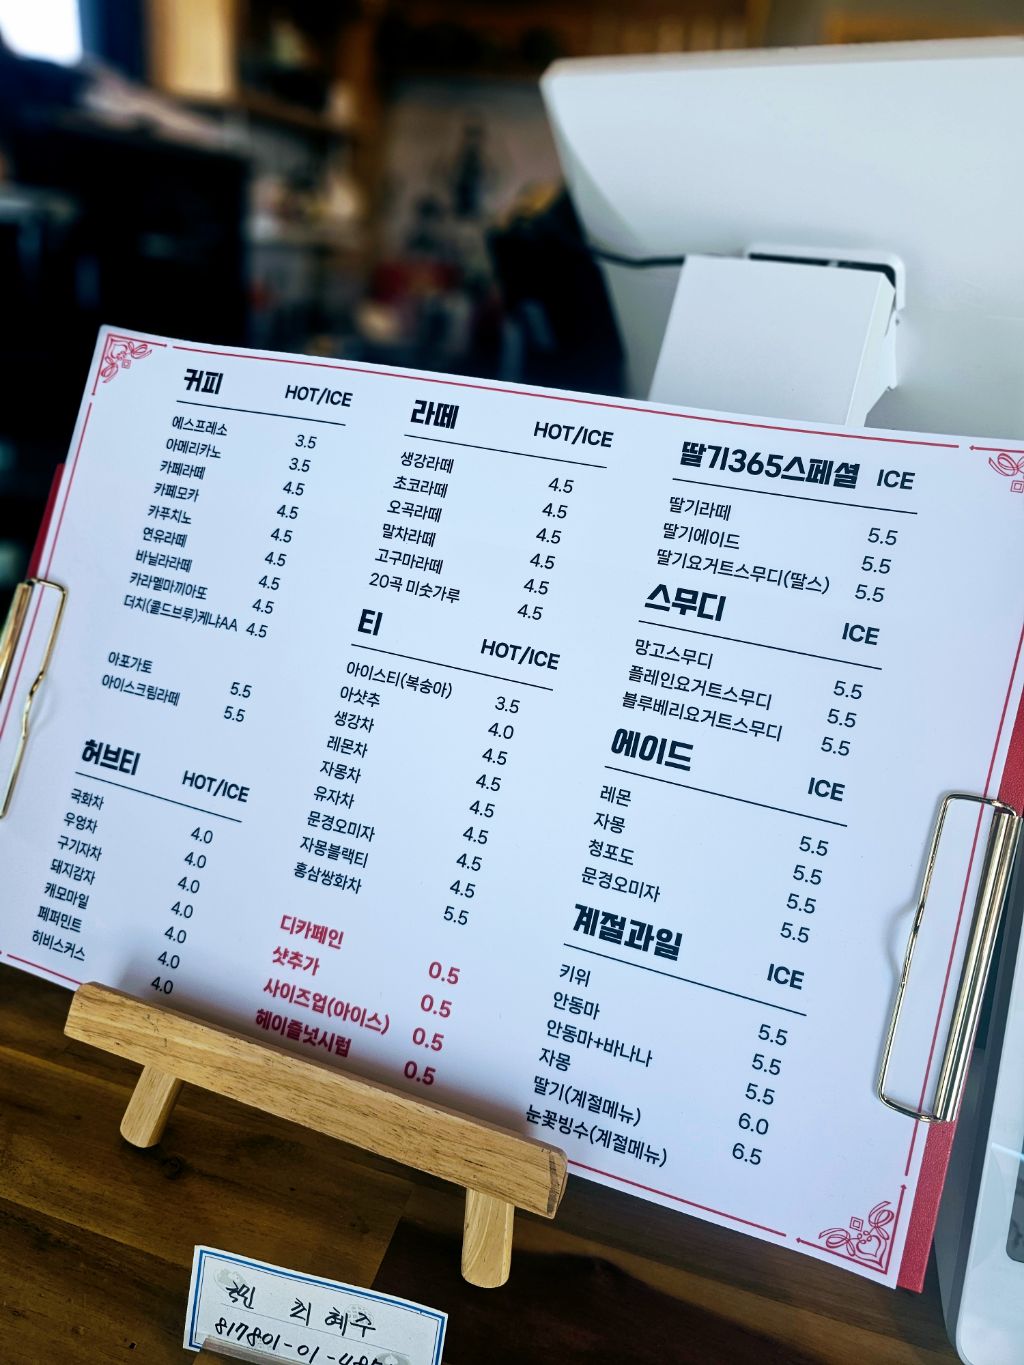 커피 HOT/ICE
에스프레소 3.5
아메리카노 3.5
카페라떼 4.5
카페모카 4.5
카푸치노 4.5
연유라떼 4.5
바닐라라떼 4.5
카라멜마끼아또 4.5
더치(콜드브루)케냐AA 4.5
아포가토 5.5
아이스크림라떼 5.5
허브티 HOT/ICE
국화차 4.0
우엉차 4.0
구기자차 4.0
돼지감자 4.0
캐모마일 4.0
페퍼민트 4.0
히비스커스 4.0
라떼 HOT/ICE
생강라떼 4.5
초코라떼 4.5
오곡라떼 4.5
말차라떼 4.5
고구마라떼 4.5
20곡 미숫가루 4.5
티 HOT/ICE
아이스티(복숭아) 3.5
아샷추 4.0
생강차 4.5
레몬차 4.5
자몽차 4.5
유자차 4.5
문경오미자 4.5
자몽블랙티 4.5
홍삼쌍화차 5.5
디카페인 0.5
샷추가 0.5
사이즈업(아이스) 0.5
헤이즐넛시럽 0.5
딸기365스페셜 ICE
딸기라떼 5.5
딸기에이드 5.5
딸기요거트스무디(딸스) 5.5
스무디 ICE
망고스무디 5.5
플레인요거트스무디 5.5
블루베리요거트스무디 5.5
에이드 ICE
레몬 5.5
자몽 5.5
청포도 5.5
문경오미자 5.5
계절과일 ICE
키위 5.5
안동마 5.5
안동마+바나나 5.5
자몽 6.0
딸기(계절메뉴) 6.5
눈꽃빙수(계절메뉴)
국민 최혜주
817801-01-485